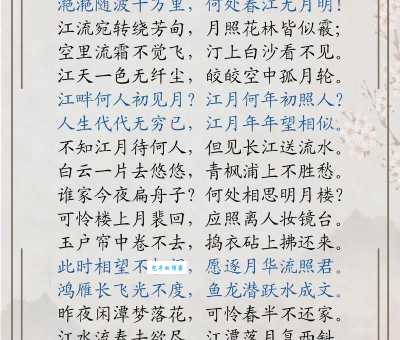 滟滟随波千万里，何处春江无月明！
江流宛转绕芳甸，月照花林皆似霰；
空里流霜不觉飞，汀上白沙看不见。
江天一色无纤尘，皎皎空中孤月轮。
江畔何人初见月？江月何年初照人？
人生代代无穷已，江月年年望相似。
不知江月待何人，但见长江送流水。
白云一片去悠悠，青枫浦上不胜愁。
谁家今夜扁舟子？何处相思明月楼？
可怜楼上月裴回，应照离人妆镜台。
玉户帘中卷不去，捣衣砧上拂还来。
此时相望不 愿逐月华流照君。
鸿雁长飞光不度，鱼龙潜跃水成文。
昨夜闲潭梦落花，可怜春半不还家。
江水流春去欲尽，江潭落月复西斜